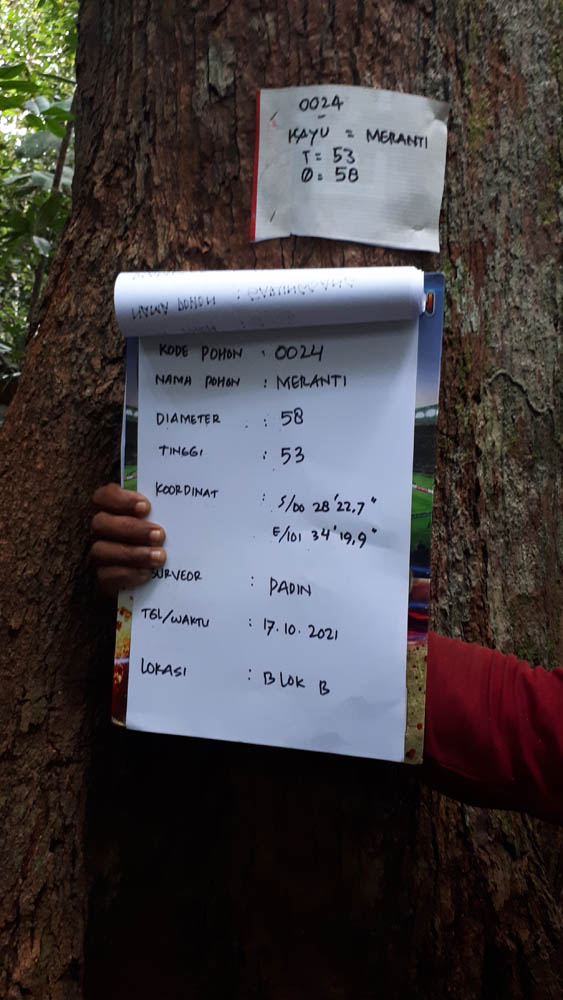 0024
KAYU = MERANTI
T = 53
Ø = 58
NAMA POHON :
KODE POHON : 0024
NAMA POHON : MERANTI
DIAMETER : 58
TINGGI : 53
KOORDINAT : S/00 28'22,7"
E/101 34'19,9"
SURVEOR : PADIN
TGL/WAKTU : 17.10.2021
LOKASI : BLOK B